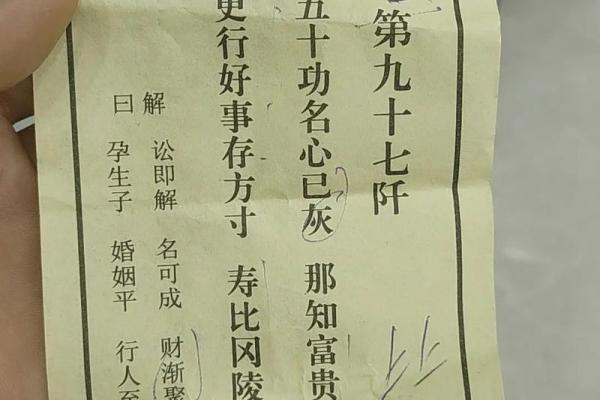 第九十七阡
五十功名心已灰 那知富贵
更行好事存方寸 寿比冈陵
解曰
讼即解 名可成 财渐聚
孕生子 婚姻平 行人至